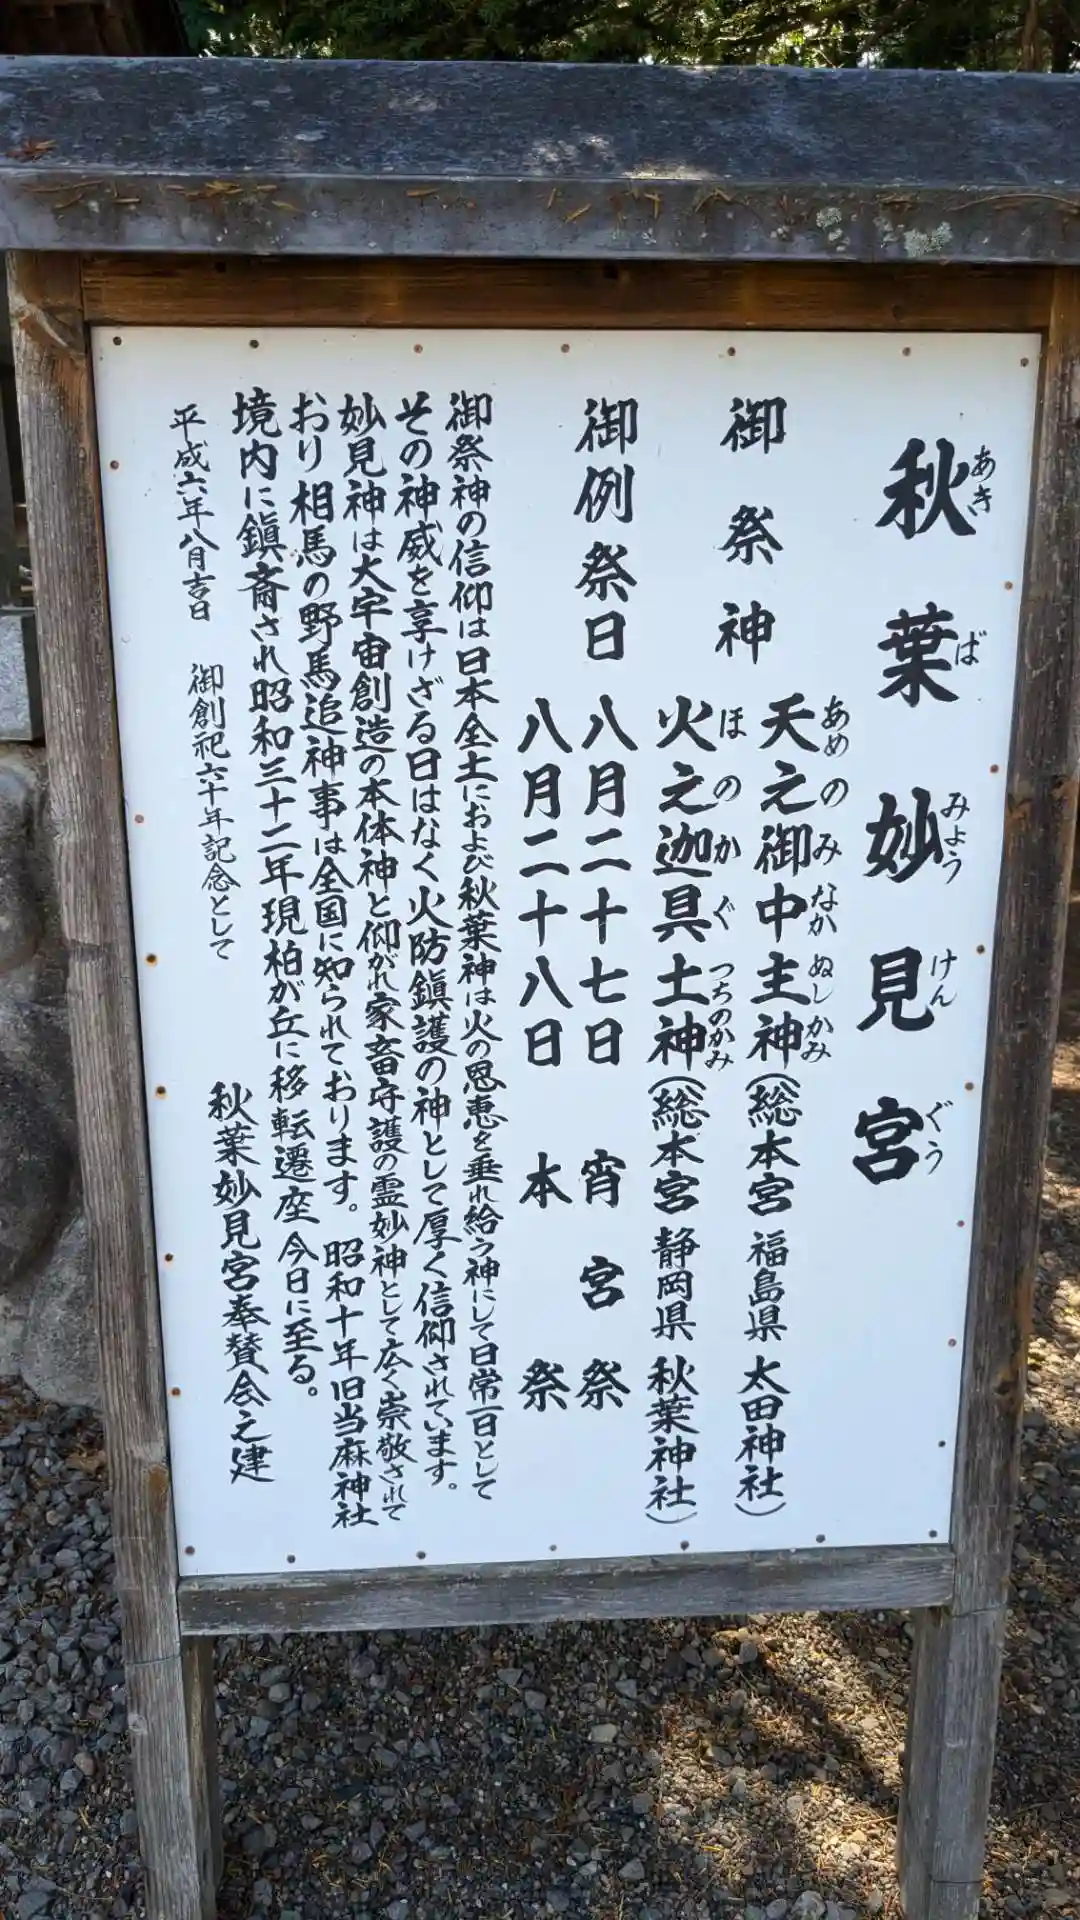 秋葉妙見宮
あきばみょうけんぐう
御祭神
天之御中主神（総本宮 福島県 太田神社）
あめのみなかぬしかみ
火之迦具土神（総本宮 静岡県 秋葉神社）
ほのかぐつちのかみ
御例祭日
八月二十七日 宵宮祭
八月二十八日 本祭
御祭神の信仰は日本全土におよび秋葉神は火の恩恵を垂れ給う神にして日常一日として
その神威を享けざる日はなく火防鎮護の神として厚く信仰されています。
妙見神は大宇宙創造の本体神と仰がれ家畜守護の霊妙神として広く崇敬されて
おり相馬の野馬追神事は全国に知られております。昭和十年旧当麻神社
境内に鎮斎され昭和三十二年現柏が丘に移転遷座今日に至る。
平成六年八月吉日 御創祀六十年記念として
秋葉妙見宮奉賛会之建